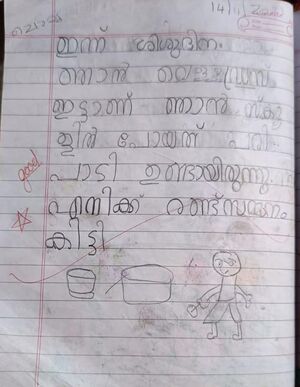 14/11
ഇന്ന് ശിശുദിനം
ഞാൻ വെള്ളഡ്രസ്
ഇട്ടാണ് ഞാൻ സ്കൂ
ളിൽ പോയത് പരി
പാടി ഉണ്ടായിരുന്നു.
എനിക്ക് രണ്ട് സമ്മാനം
കിട്ടി
good